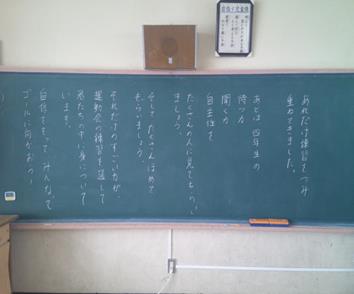 あれだけ練習をつみ
重ねてきました。
あとは 四年生の
待つ力
聞く力
自主性を
たくさんの人に見てもらい
ましょう。
そして たくさんほめて
もらいましょう。
それだけのすごい力が、
運動会の練習を通して
君たちの中に身について
います。
自信をもって みんなで
ゴールに向かおう!